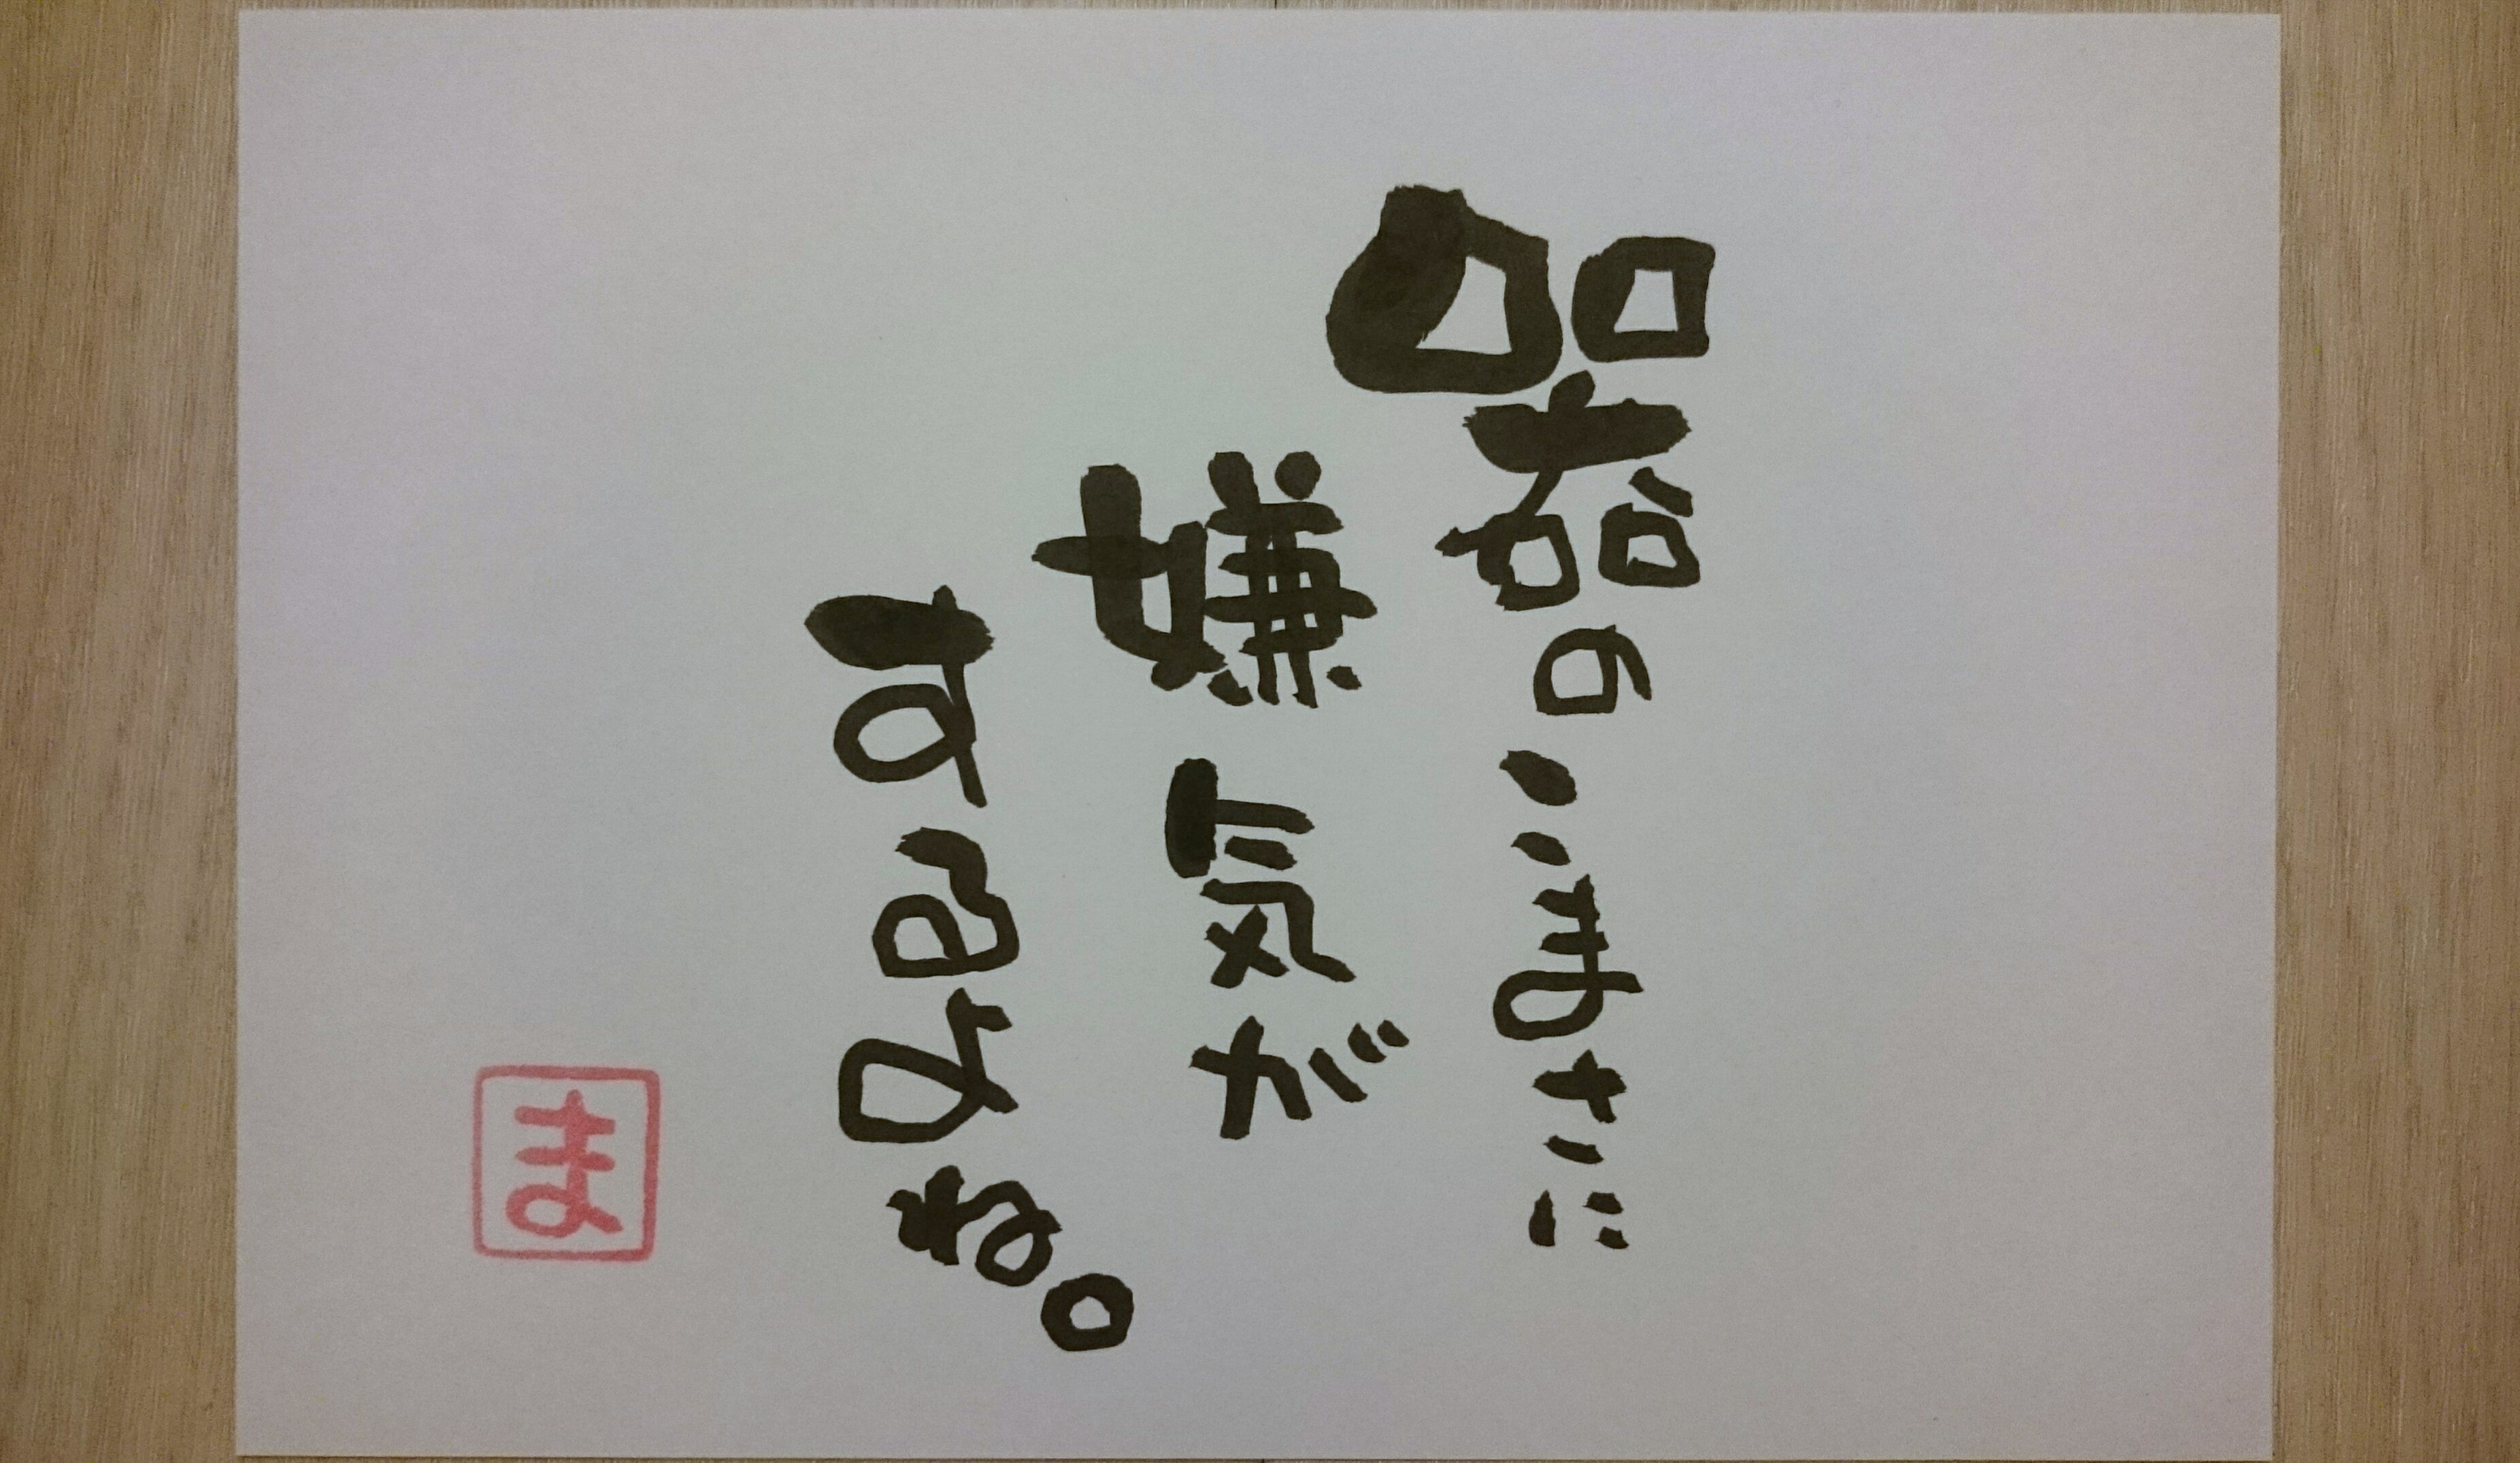 器のこまさに
嫌気が
するよね。
ま